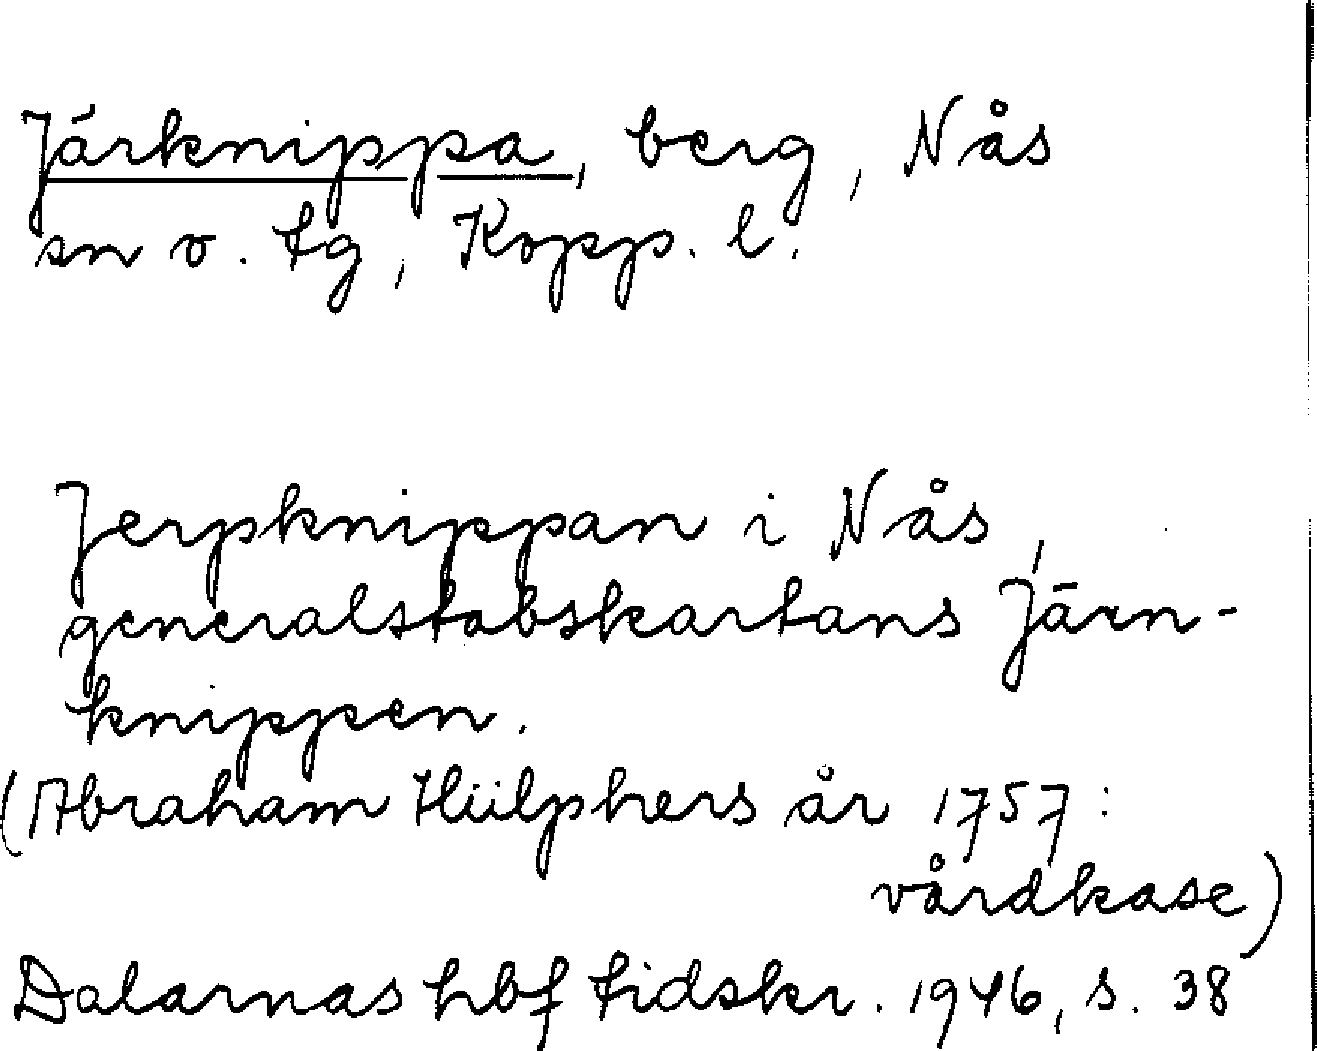 Järknippa, berg, Nås
sn v. tg, Kopp. l.
Jerpknippan i Nås,
generalstabskartans Järn-
knippen.
(Abraham Hülphers år 1757:
vårdkase)
Dalarnas hbf tidskr. 1946, s. 38